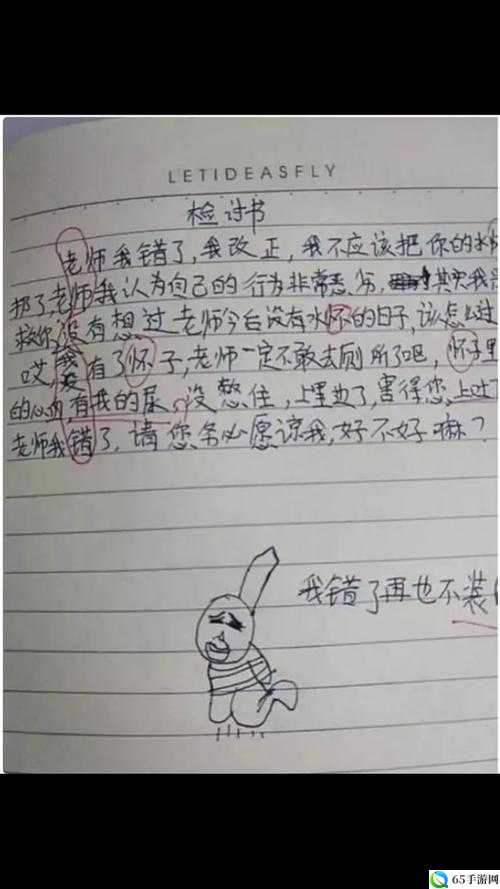 LETIDEASFLY
检讨书
老师我错了,我改正,我不应该把你的水
挪了,老师我认为自己的行为非常恶劣,其实我是
救你,没有想过老师今后没有水怀的日子,该怎么过
哎,有了怀子,老师一定不敢去厕所了吧,怀子里
的心有我的尿,没憋住,上里边了,害得您上吐
老师我错了,请您务必愿谅我,好不好嘛?
我错了再也不装
65手游网